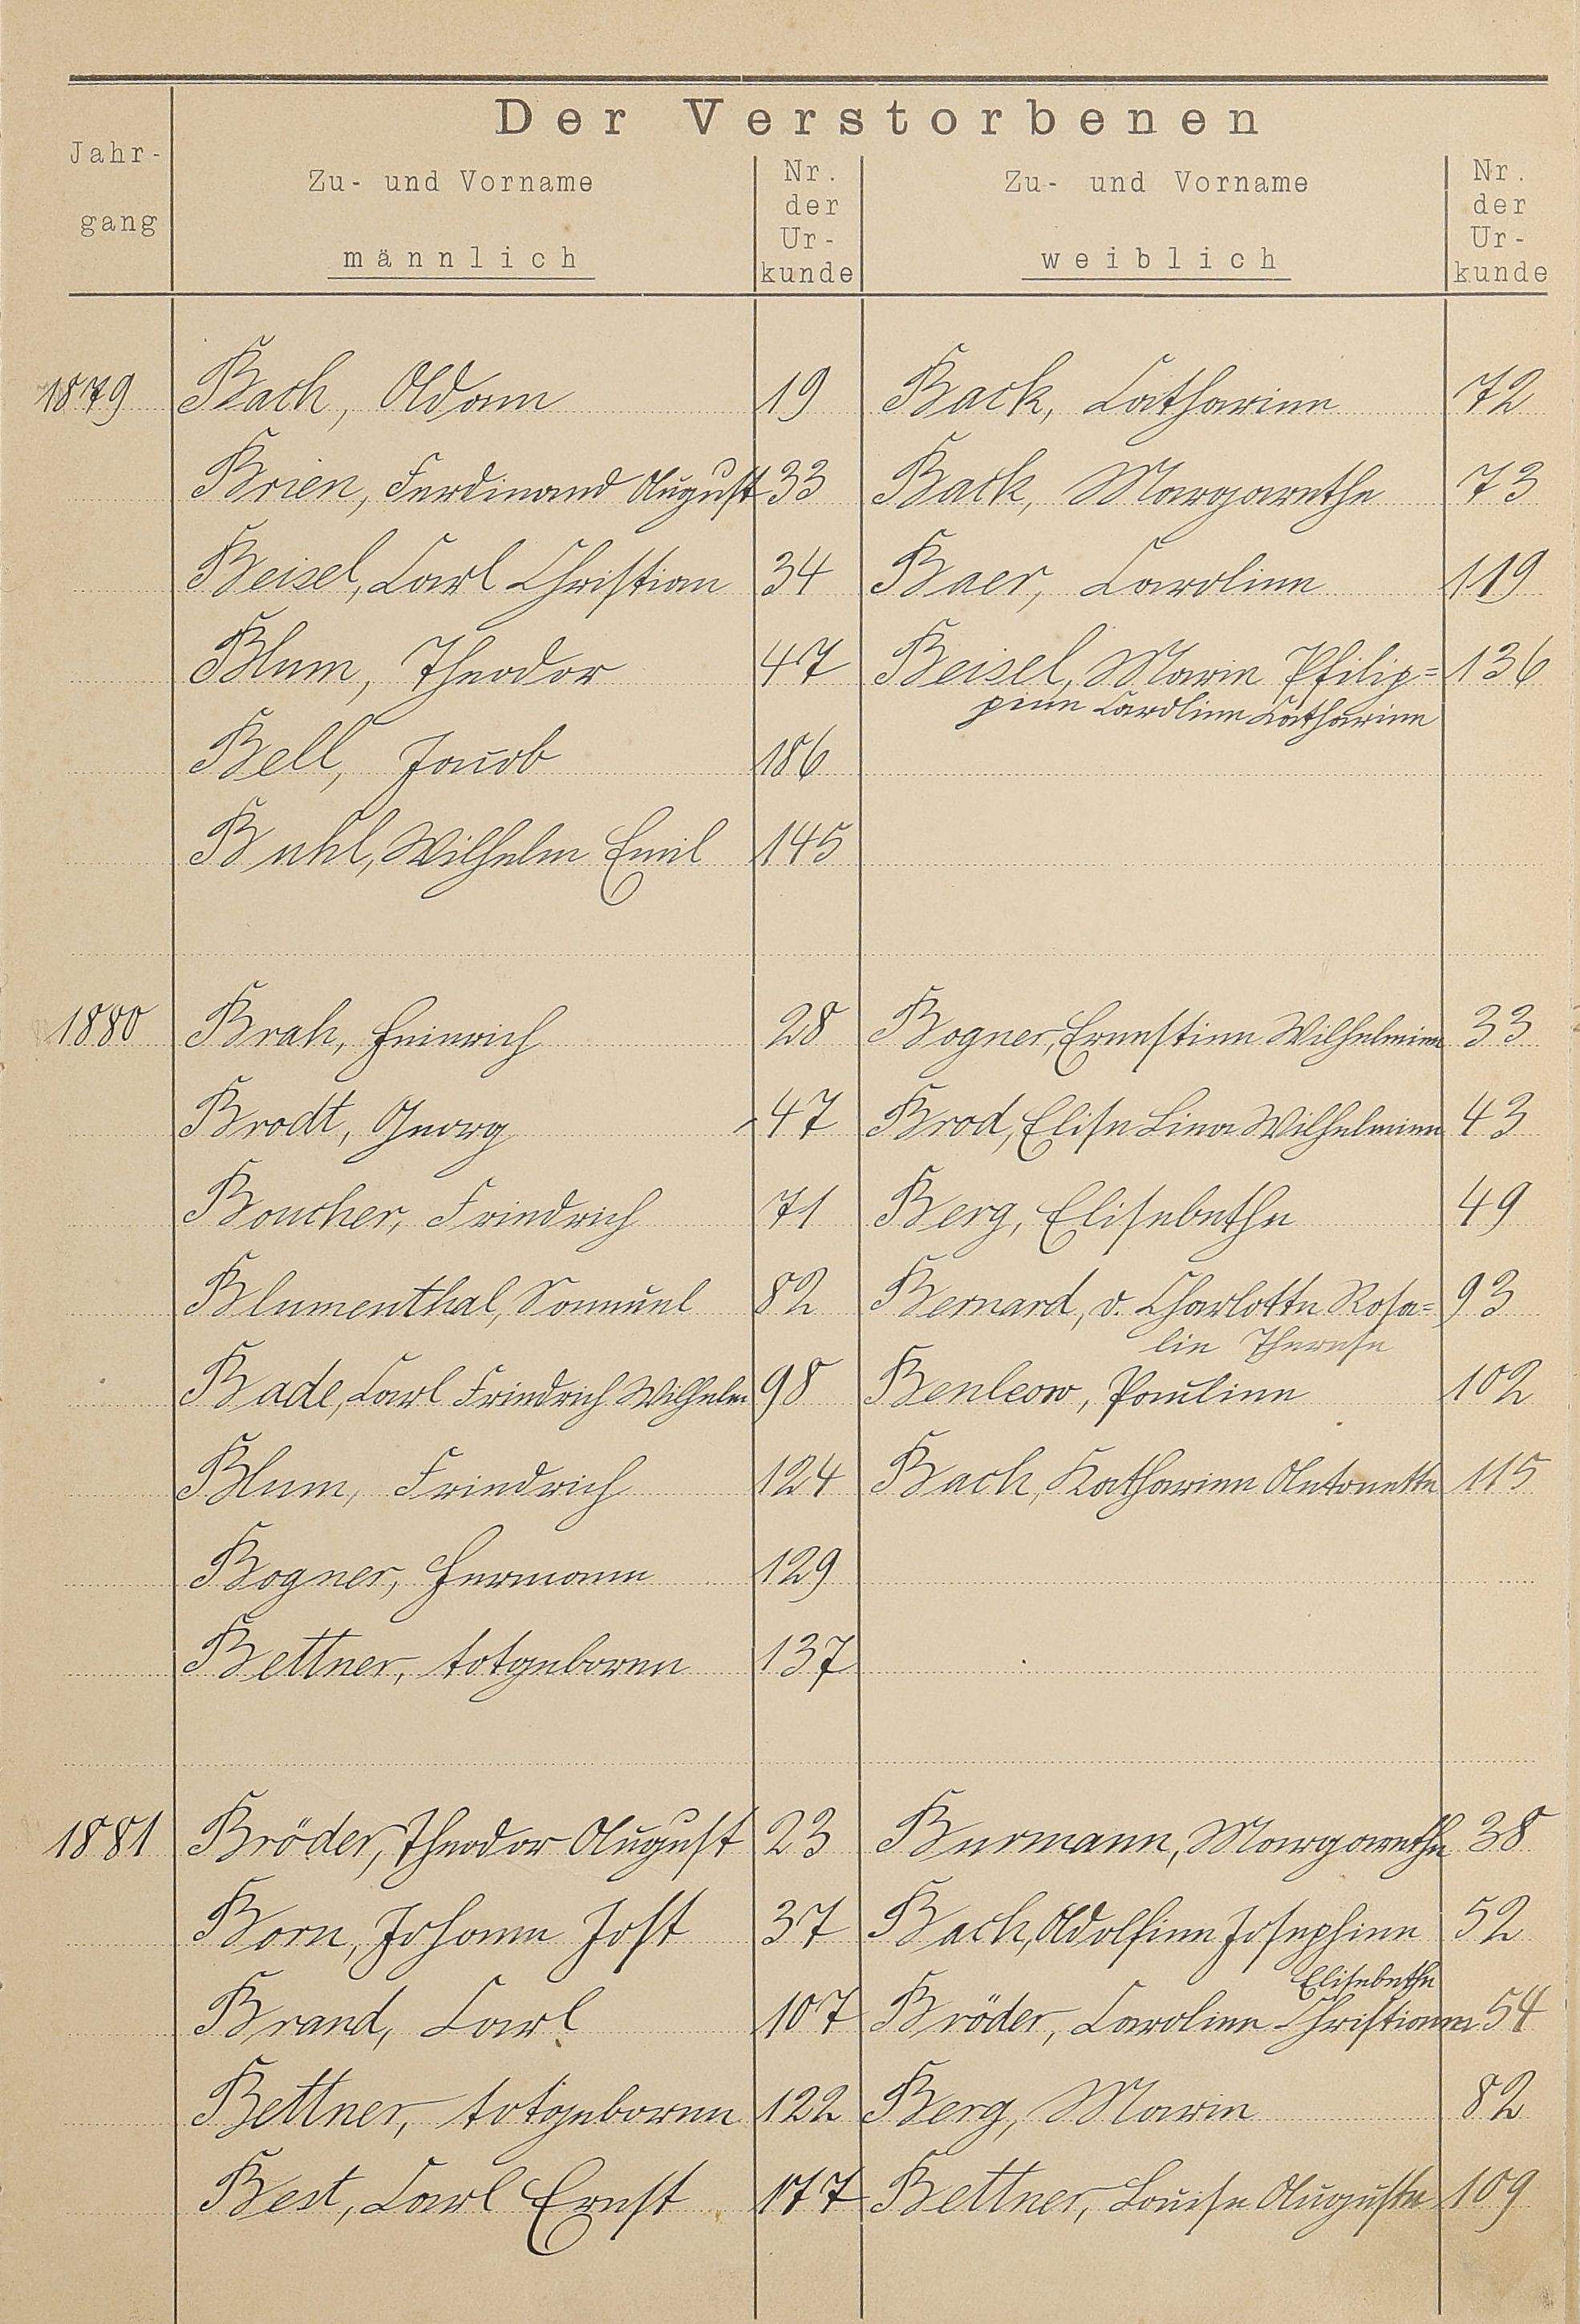 Der Verstorbenen
Jahr-
gang
Zu- und Vorname
männlich
Nr.
der
Ur-
kunde
Zu- und Vorname
weiblich
Nr.
der
Ur-
kunde
1879 Bach, Adam 19 Back, Catharine 72
Brien, Ferdinand August 33 Back, Margarethe 73
Beisel, Carl Christian 34 Baer, Caroline 119
Blum, Theodor 47 Beisel, Marie Philip= 136
pine Caroline Catharine
Bell, Jacob 186
Buhl, Wilhelm Emil 145
1880 Brah, Heinrich 28 Bogner, Ernestine Wilhelmine 33
Brodt, Georg 47 Brod, Elise Lina Wilhelmine 43
Boucher, Friedrich 71 Berg, Elisebethe 49
Blumenthal, Samuel 82 Bernard, v. Charlotte Rosa= 93
lie Therese
Bade, Carl Friedrich Wilhelm 98 Benleow, Pauline 102
Blum, Friedrich 124 Bach, Katharine Antonette 115
Bogner, Hermann 129
Bettner, totgeboren 137
1881 Bröder, Theodor August 23 Burmann, Margarethe 38
Born, Johann Jost 37 Bach, Adolfine Josephine 52
Elisebethe
Brand, Carl 107 Bröder, Caroline Christiane 54
Bettner, totgeboren 122 Berg, Marie 82
Best, Carl Ernst 177 Bettner, Louise Auguste 109